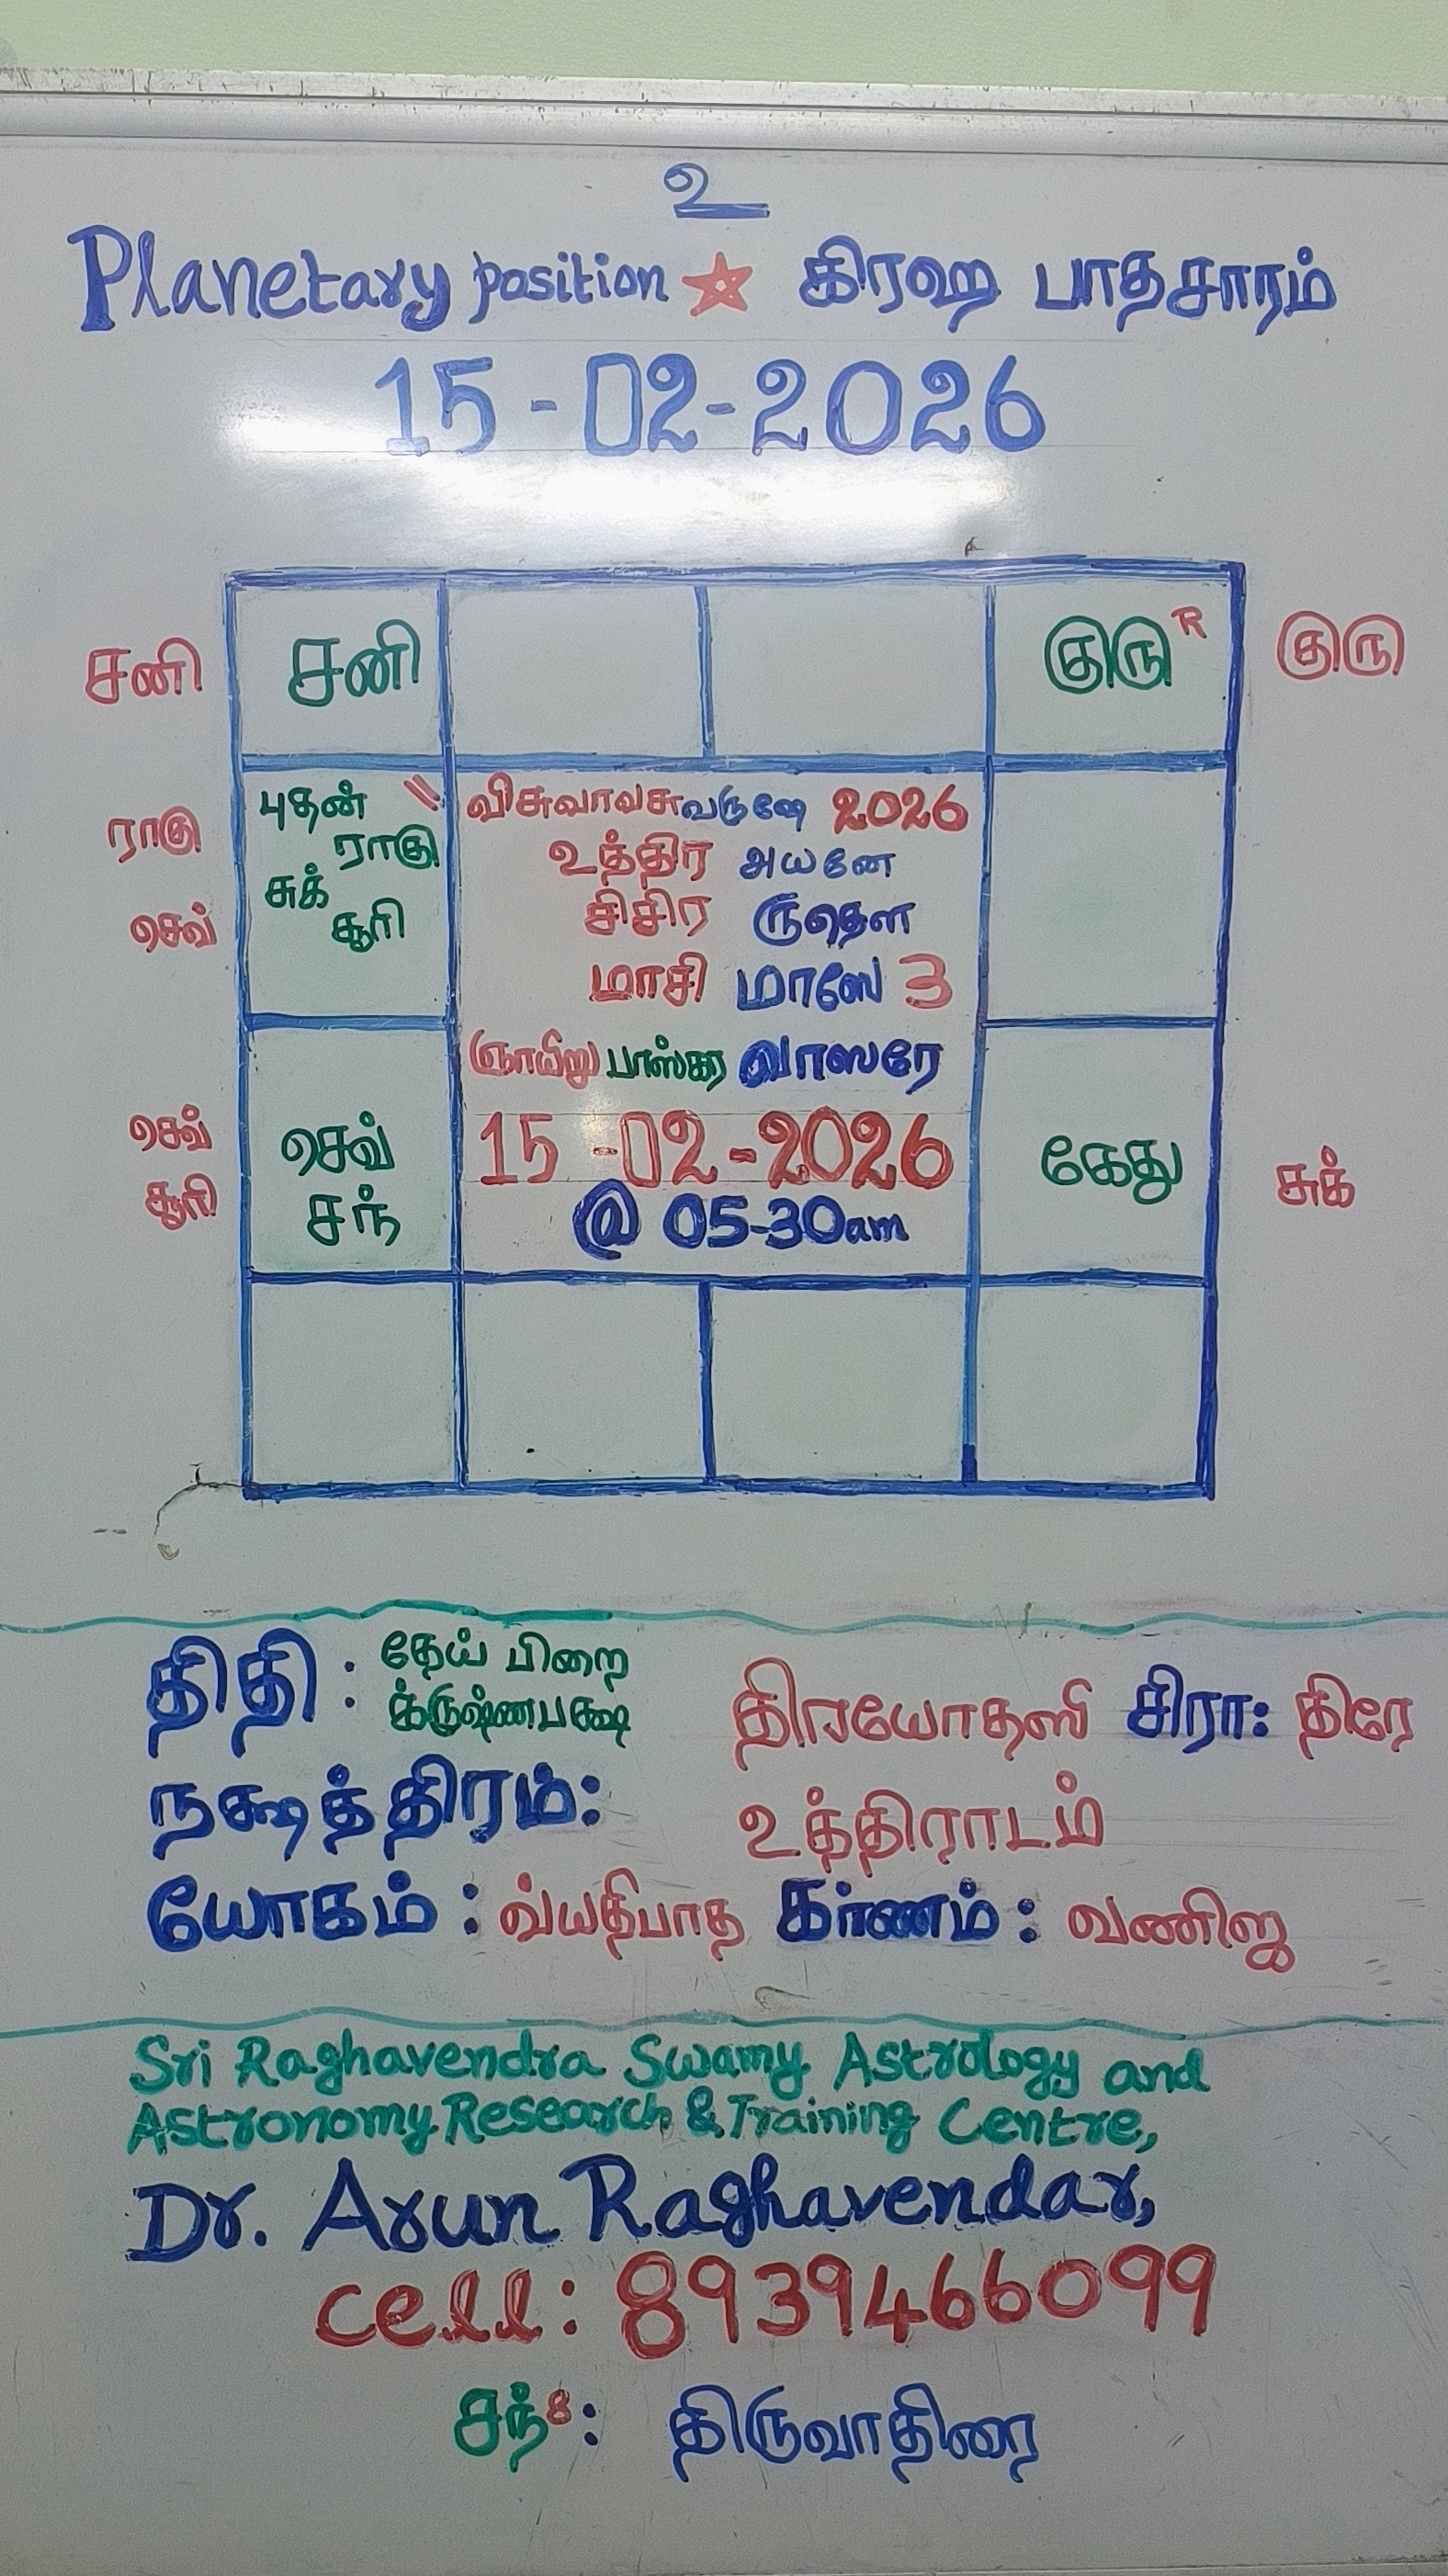 உ
Planetary position ☆ கிரஹ பாதசாரம்
15-02-2026
சனி சனி குரு R குரு
ராகு புதன் \\ விசுவாவசுவருஷே 2026
ராகு உத்திர அயனே
செவ் சுக் சிசிர ருதௌ
சூரி
மாசி மாஸே 3
ஞாயிறு பாஸ்கர வாஸரே
செவ் செவ் 15-02-2026 கேது சுக்
சூரி சந் @ 05-30am
திதி : தேய் பிறை
க்ருஷ்ணபக்ஷ திரயோதஸி சிரா: திரே
நக்ஷத்திரம்: உத்திராடம்
யோகம் : வ்யதிபாத கர்ணம் : வணிஜ
Sri Raghavendra Swamy Astrology and
Astronomy Research & Training Centre,
Dr. Arun Raghavendar,
cell: 8939466099
சந் 8: திருவாதிரை